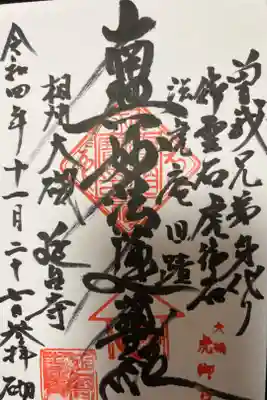 曽我兄弟身代り
御霊石虎御石
法虎庵旧蹟
南無妙法蓮華経
相州大磯 延台寺
令和四年十一月二十七日参拝
大磯
虎御石